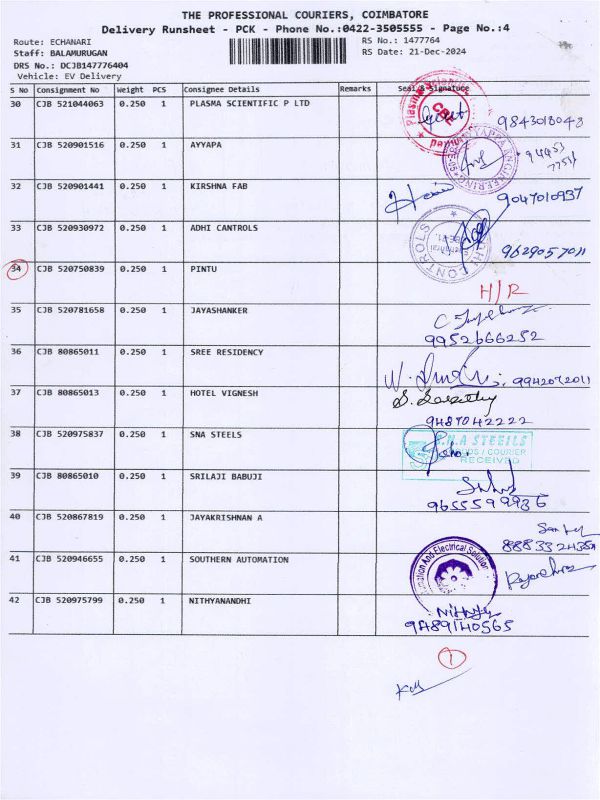 THE PROFESSIONAL COURIERS, COIMBATORE
Delivery Runsheet - PCK - Phone No.:0422-3505555 - Page No.:4
Route: ECHANARI RS No.: 1477764
Staff: BALAMURUGAN RS Date: 21-Dec-2024
DRS No.: DCJB147776404
Vehicle: EV Delivery
S No Consignment No Weight PCS Consignee Details Remarks Seal & Signature
30 CJB 521044063 0.250 1 PLASMA SCIENTIFIC P LTD
CBE
9843018043
31 CJB 520901516 0.250 1 AYYAPA
32 CJB 520901441 0.250 1 KIRSHNA FAB
9047010937
33 CJB 520930972 0.250 1 ADHI CANTROLS
CONTROLS
9629057011
34 CJB 520750839 0.250 1 PINTU
H/R
35 CJB 520781658 0.250 1 JAYASHANKER
9952666252
36 CJB 80865011 0.250 1 SREE RESIDENCY
9942072011
37 CJB 80865013 0.250 1 HOTEL VIGNESH
9487042222
38 CJB 520975837 0.250 1 SNA STEELS
S.N.A STEEILS
/ COURIER
RECEIVED
39 CJB 80865010 0.250 1 SRILAJI BABUJI
9655599936
40 CJB 520867819 0.250 1 JAYAKRISHNAN A
41 CJB 520946655 0.250 1 SOUTHERN AUTOMATION
And Electrical Solution
42 CJB 520975799 0.250 1 NITHYANANDHI
9489140565
1